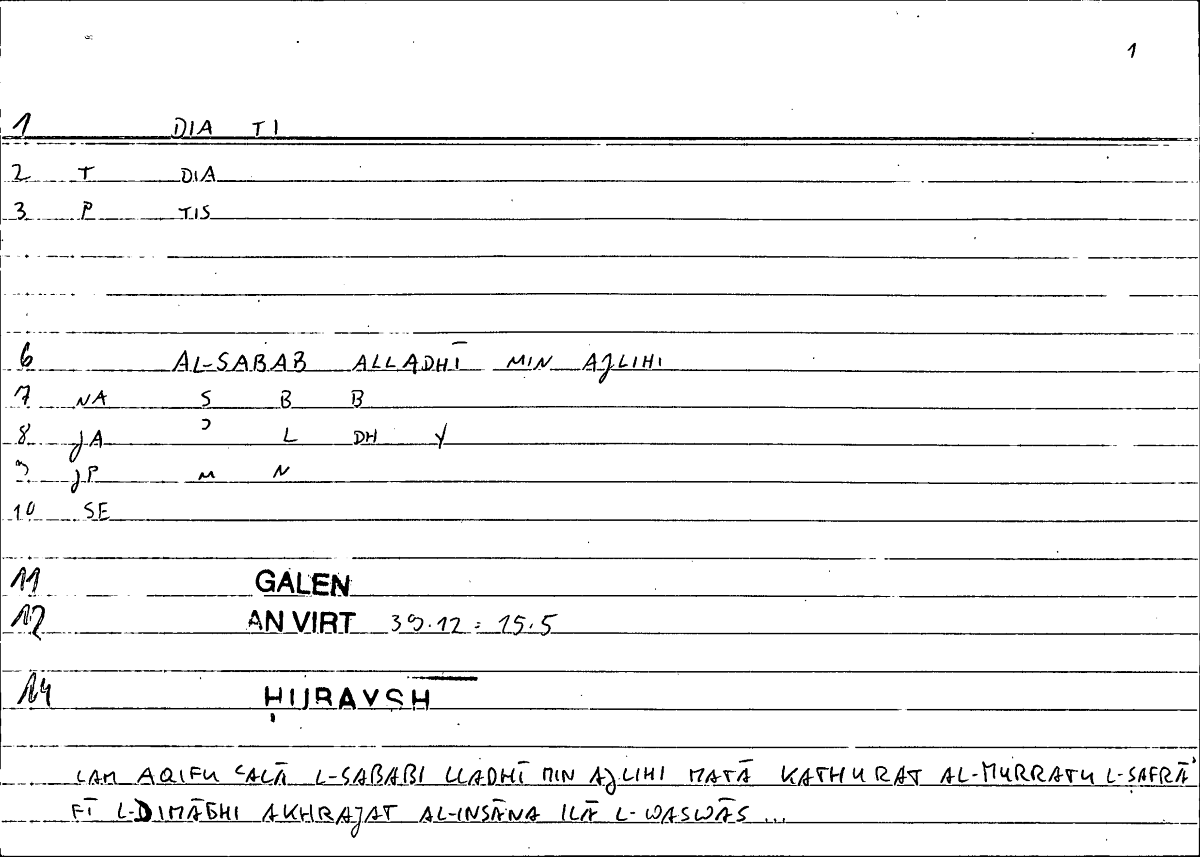 1
1 DIA TI
2 T DIA
3 P TIS
6 AL-SABAB ALLADHĪ MIN AJLIHI
7 NA S B B
8 JA ʾ L DH Y
9 JP M N
10 SE
11 GALEN
12 AN VIRT 39.12 = 15.5
14 ḤUBAYSH
LAM AQIFU ʿALĀ L-SABABI LLADHĪ MIN AJLIHI MATĀ KATHURAT AL-MURRATU L-SAFRĀʾ
FĪ L-DIMĀGHI AKHRAJAT AL-INSĀNA ILĀ L-WASWĀS ...